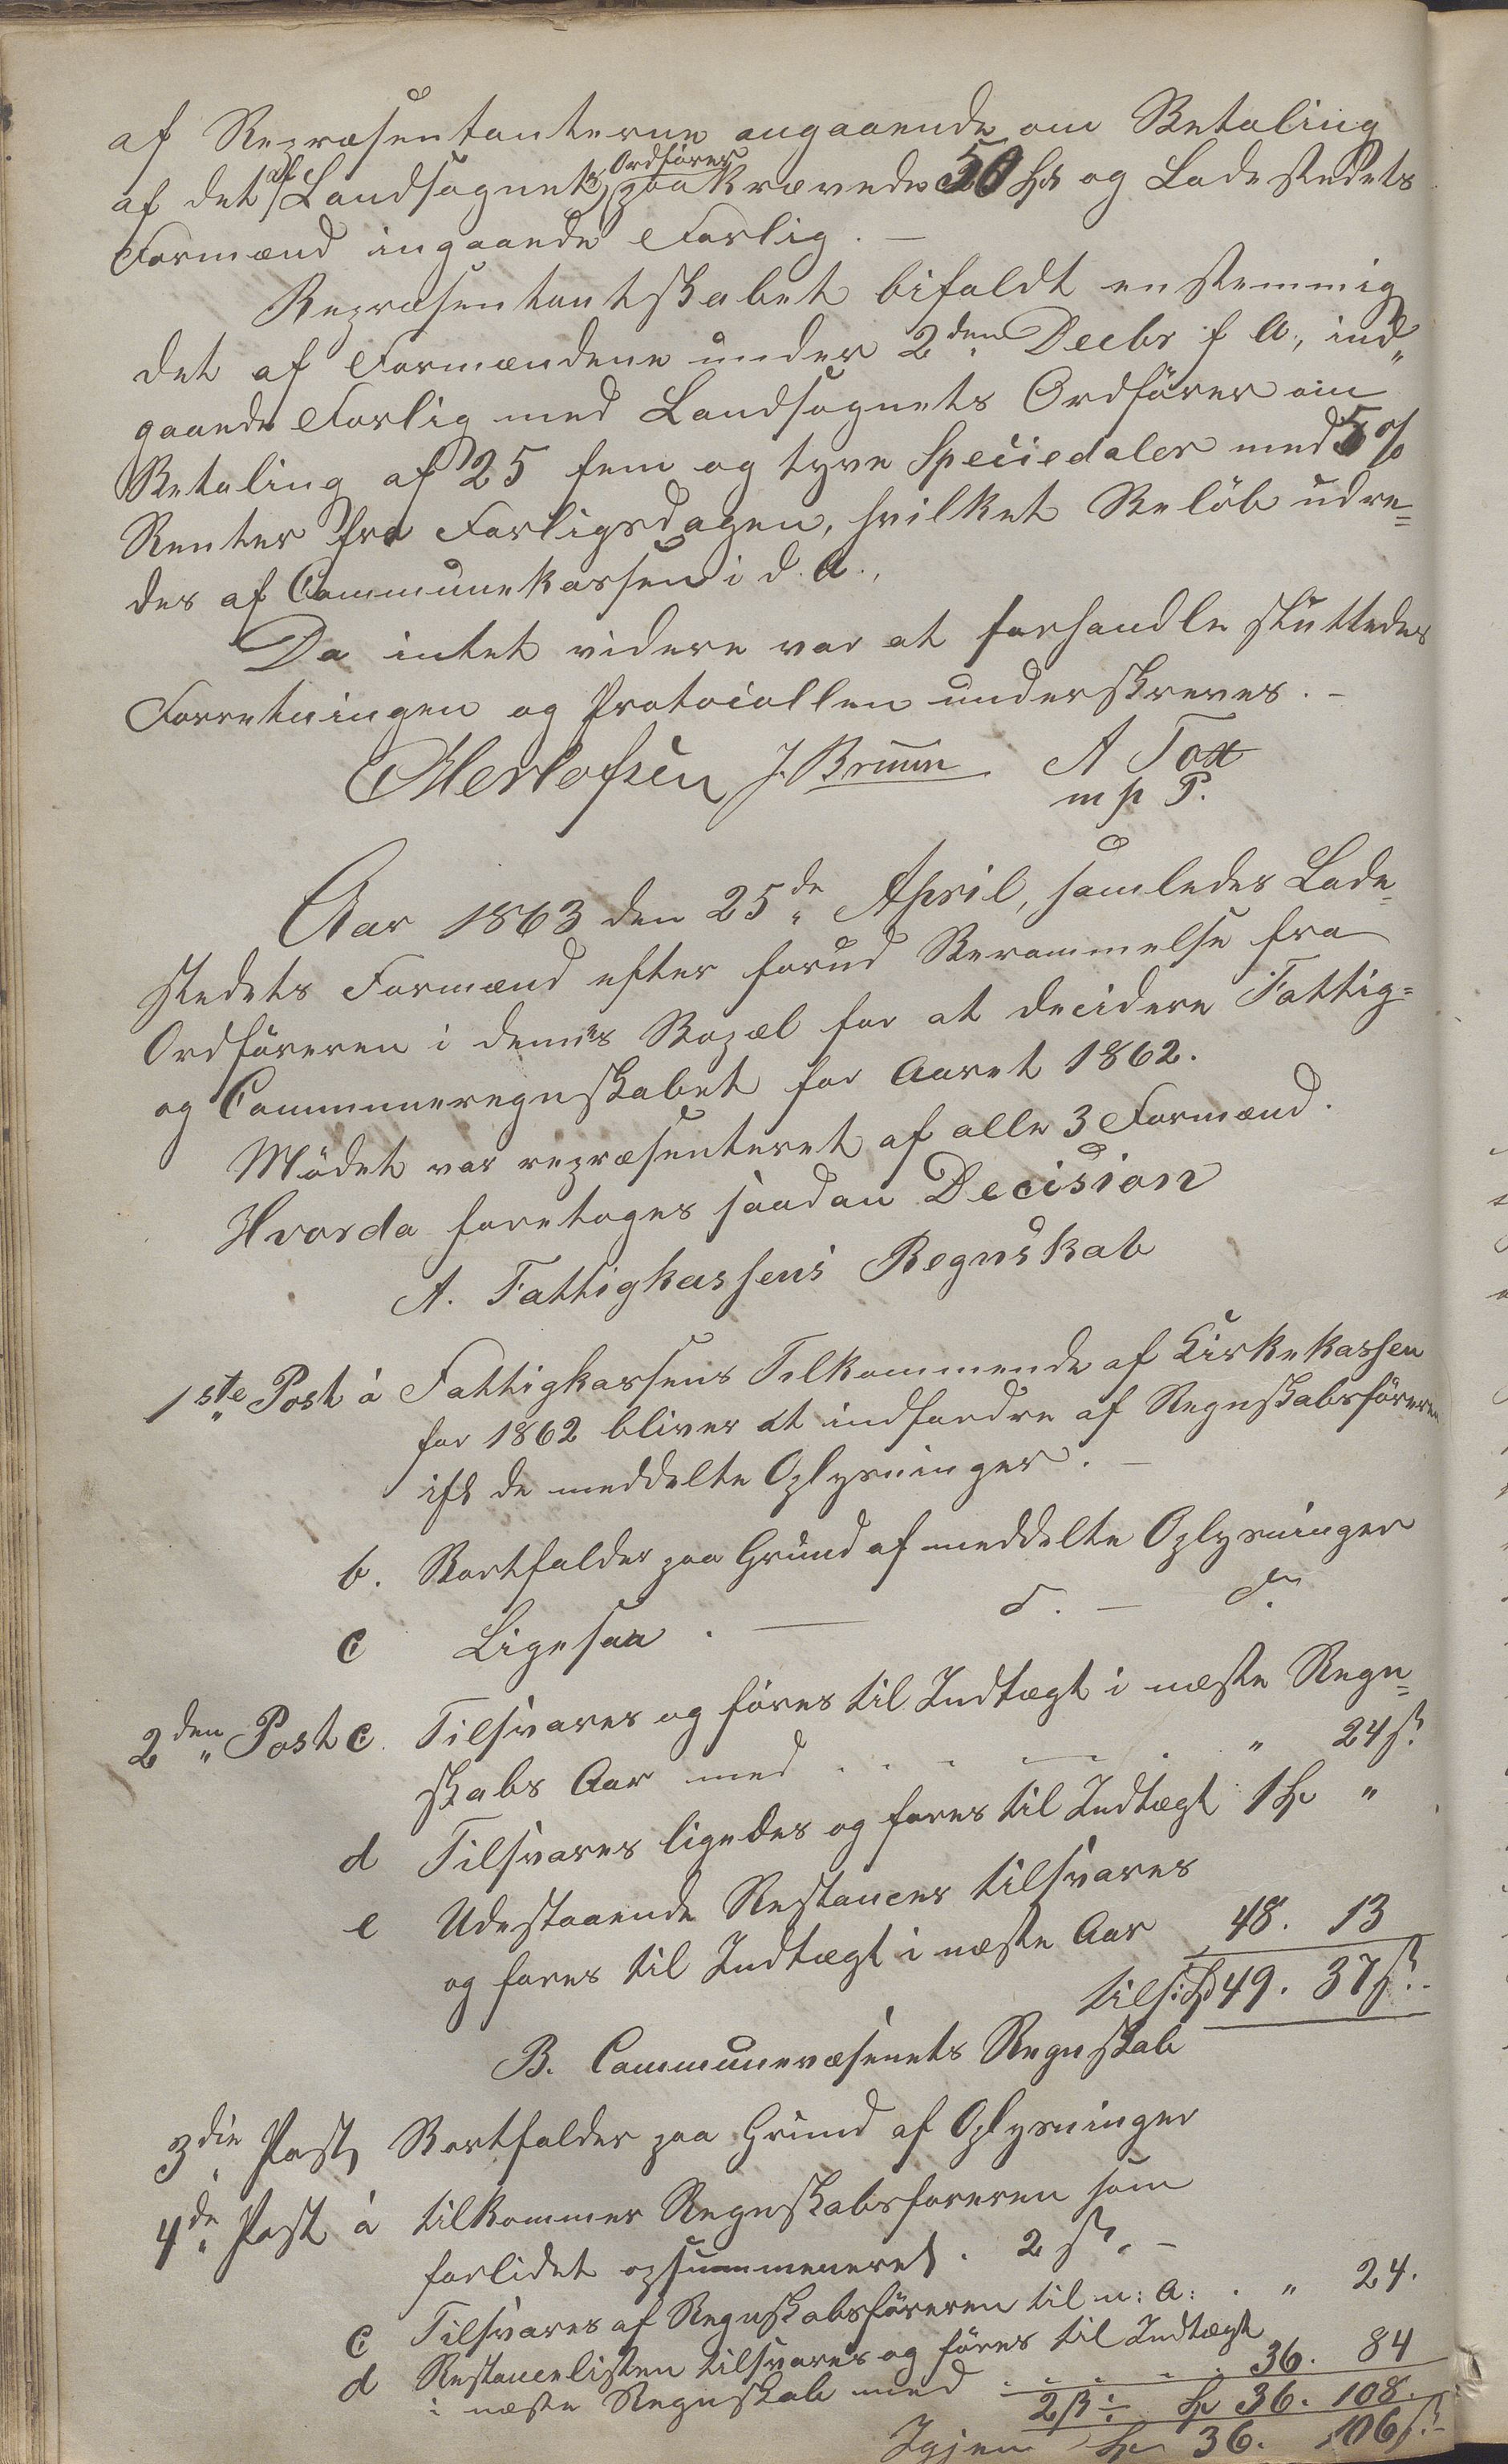 af Repræsentanterne angaaende om Betaling
af det af Landsognets Ordförer paakrævede 50 Spd og Ladestedets
Formænd ingaaende Forlig. —
Repræsentantskabet bifaldt enstemmig
det af Formændene under 2den Decbr f. A., ind„
gaaende Forlig med Landsognets Ordförer om
Betaling af 25 fem og tyve Speciedaler med 5%
Renter fra Forligsdagen, hvilket Belöb udre=
des af Communekassen i d. A.,
Da intet videre var at forhandle sluttedes
Forretningen og Protocollen underskreves. –
J. Bruun A Tox
m p P.
Aar 1863 den 25de April, samledes Lade„
stedets Formænd efter forud Berammelse fra
Ordföreren i dennes Bopæl for at decidere Fattig=
og Communeregnskabet for Aaret 1862.
Mödet var repræsenteret af alle 3 Formænd.
Hvorda foretoges saadan Decision
A. Fattigkassens Regnskab
1ste Post a Fattigkassens Tilkommende af Kirkekassen
for 1862 bliver at indfordre af Regnskabsföreren
ifl de meddelte Oplysninger. –
b. Bortfalder paa Grund af meddelte Oplysninger
c Ligesaa . — d. – do
2den Post c. Tilsvares og föres til Indtægt i næste Regn=
skabs Aar med . . . . " 24 ß.
d Tilsvares ligedes og føres til Indtægt 1 Sp "
e Udestaaende Restancer tilsvares
og føres til Indtægt i næste Aar 48. 13
tils: Spd 49. 37 ß.
B. Communevæsenets Regnskab
3die Post, Bortfalder paa Grund af Oplysninger
4de Post a tilkommer Regnskabsføreren som
forlidet opsummeneret. 2 ß. –
c Tilsvares af Regnskabsføreren til n: A: . " 24.
d Restancelisten tilsvares og föres til Indtægt
i næste Regnskab med . . . . . 36. 84
2 ß ÷ Sp 36. 108.
Igjen Sp 36. 106 ß.